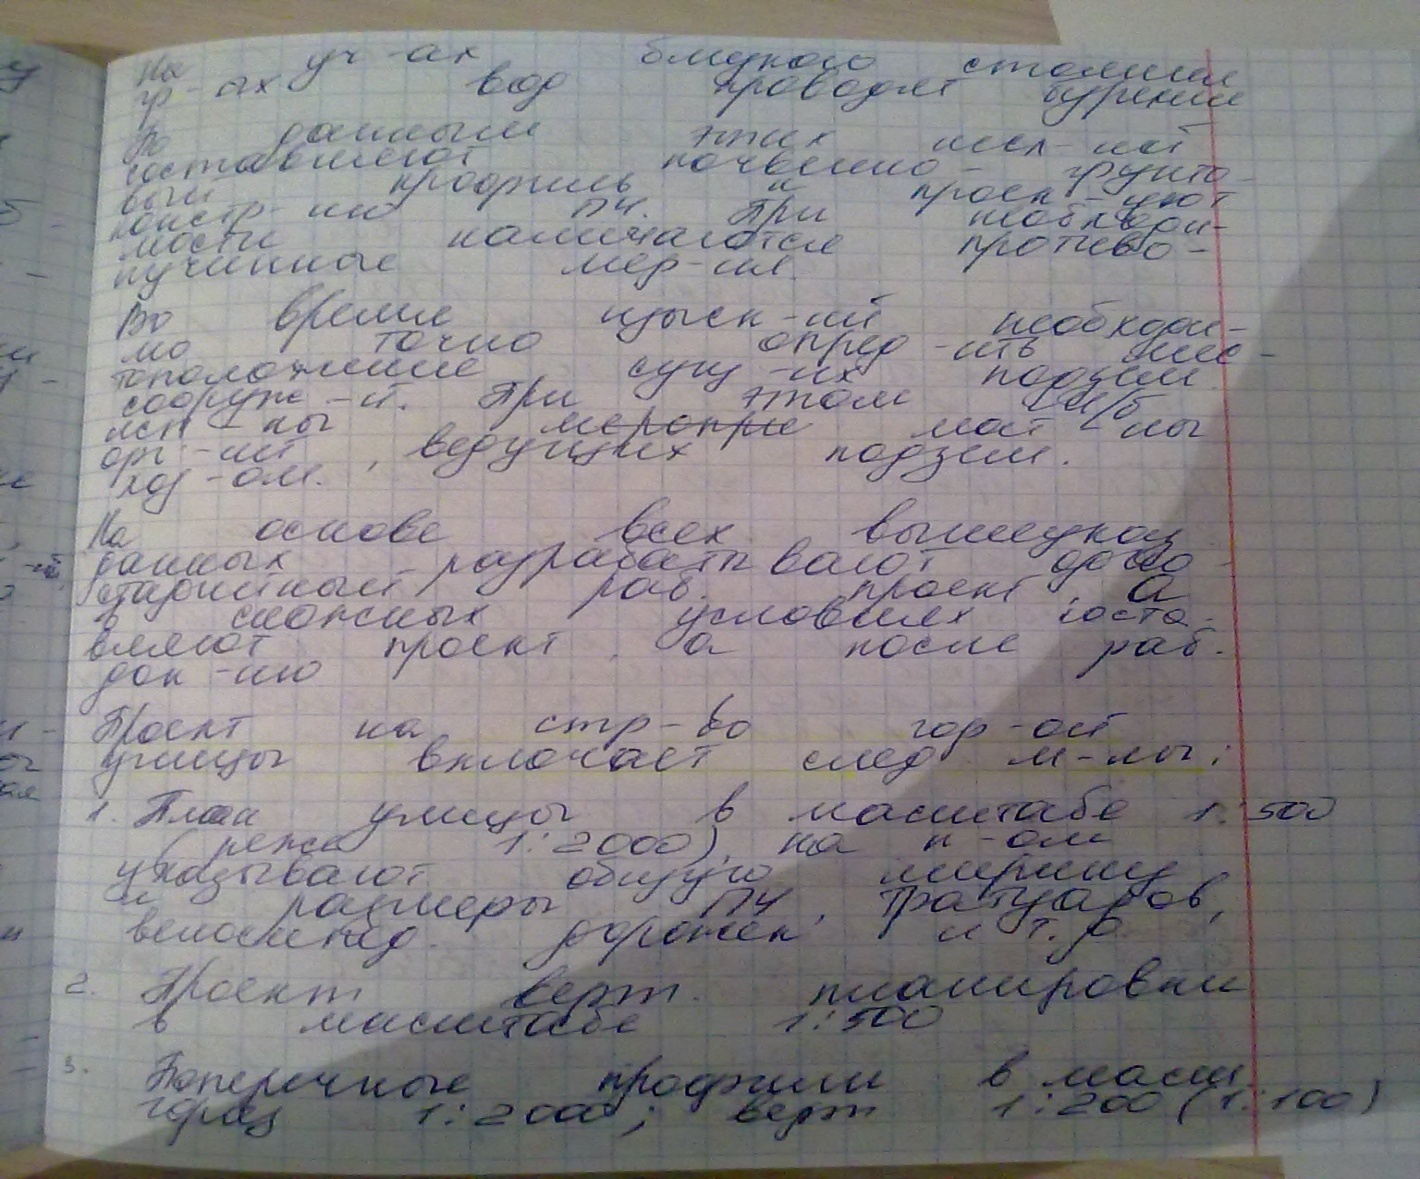 На уч-ах близкого стояния
гр-ых вод проводят бурение
По данным этих изск-ий
составляют почвенно-грунто-
вый профиль и проек-уют
констр-ию ПЧ. При необходи-
мости намечаются противо-
пучинные мер-ия.
Во время изыск-ий необходи-
мо точно опред-ить мес-
тоположение сущ-их подзем.
сооруж-й. При этом м/б
исп-ны меропри мат-лы
орг-ий, ведущих подзем.
хоз-ом.
На основе всех вышеуказ
данных разрабатывают одно-
стадийный раб. проект, а
в сложных условиях соста-
вляют проект, а после раб.
док-ию
Проект на стр-во гор-ой
улицы включает след м-лы:
1. План улицы в масштабе 1:500
(реже 1:2000), на к-ом
указывают общую ширину
и размеры ПЧ, тротуаров,
велосипед. дорожек и т.д.
2. Проект верт. планировки
в масштабе 1:500
3. Поперечные профили в масш
гориз 1:2000; верт 1:200 (1:100)